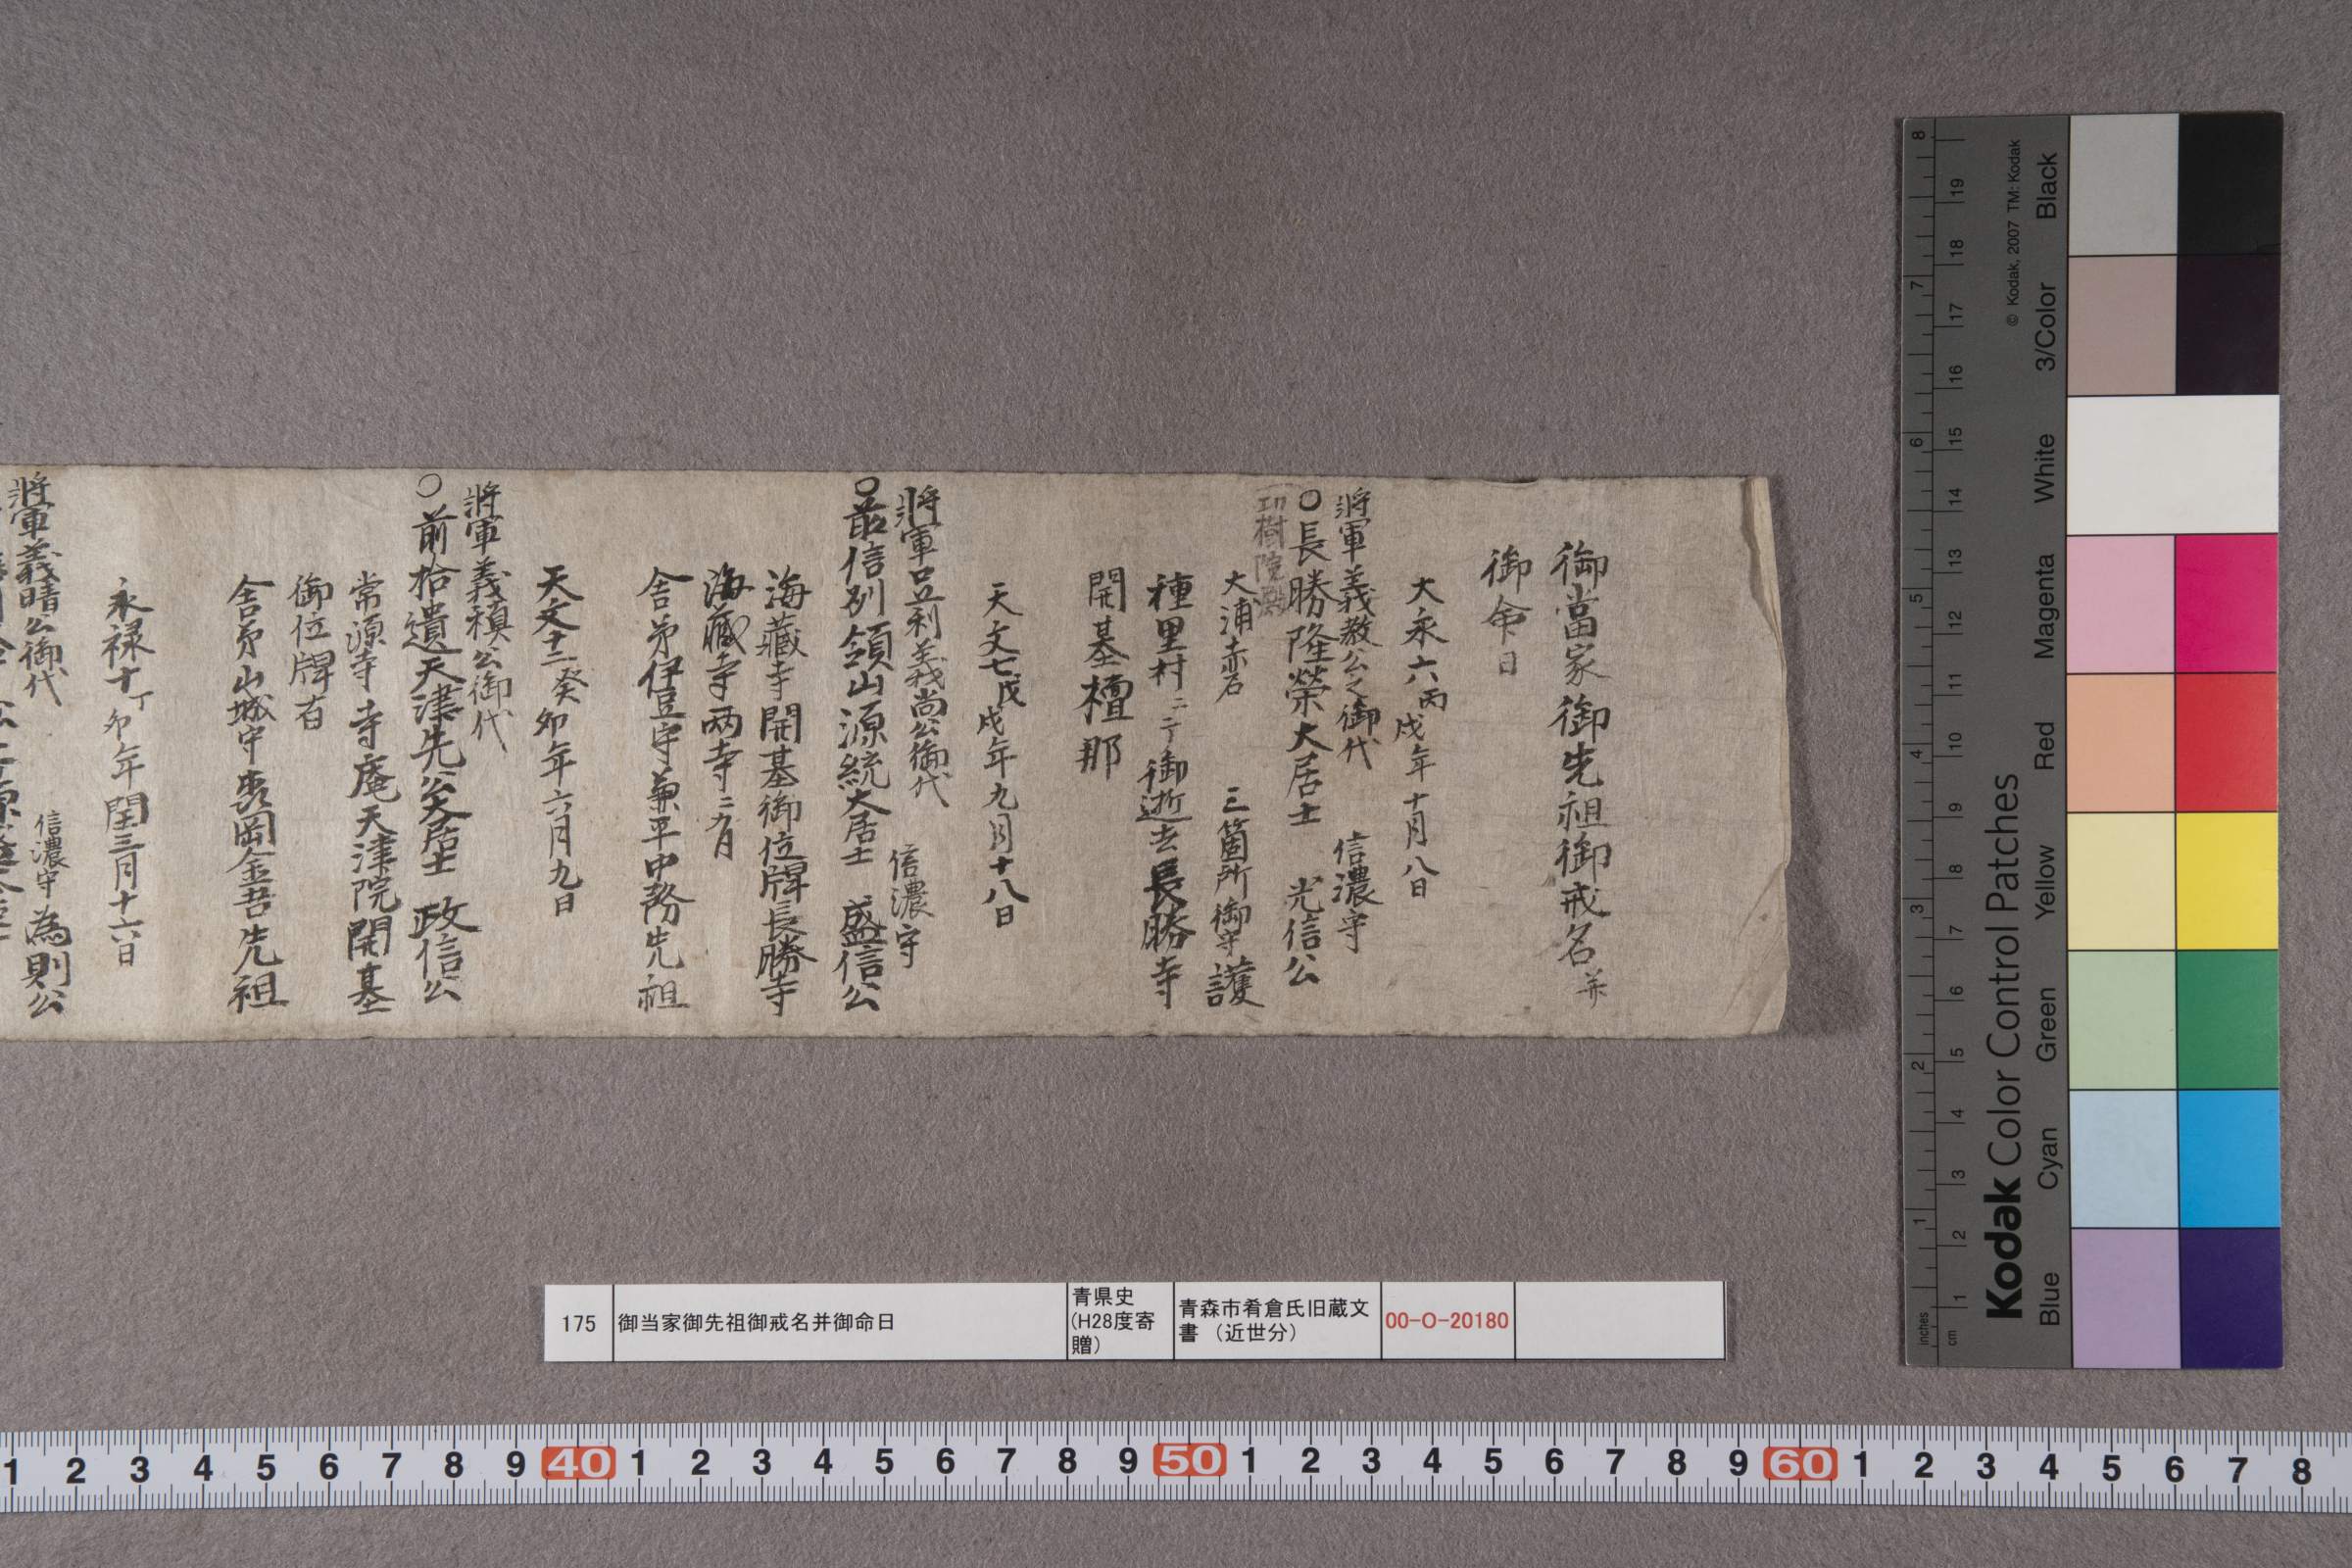 御當家御先祖御戒名并
御命日
大永六丙戌年十月八日
將軍義教公之御代 信濃守
○長勝隆榮大居士 光信公
功樹院殿
大浦赤石 三箇所御守護
種里村ニ二テ御逝去長勝寺
開基檀那
天文七戊戌年九月十八日
將軍足利義尚公御代 信濃守
○最信列領山源統大居士 盛信公
海藏寺開基御位牌長勝寺
海藏寺両寺ニ有
舎弟伊豆守兼平中務先祖
天文十二癸卯年六月九日
將軍義稙公御代
○前拾遺天津先公大居士 政信公
常源寺 寺庵天津院開基
御位牌有
舎弟山城守 岡金吾先祖
永禄十丁卯年閏三月十六日
將軍義晴公御代 信濃守為則公
175 御当家御先祖御戒名并御命日 青県史(H28度寄贈) 青森市肴倉氏旧蔵文書(近世分) 00-O-20180
Kodak Color Control Patches
© Kodak, 2007 TM: Kodak
Blue Cyan Green Yellow Red Magenta White 3/Color Black
inches 1 2 3 4 5 6 7 8
cm 1 2 3 4 5 6 7 8 9 10 11 12 13 14 15 16 17 18 19
1 2 3 4 5 6 7 8 9 40 1 2 3 4 5 6 7 8 9 50 1 2 3 4 5 6 7 8 9 60 1 2 3 4 5 6 7 8